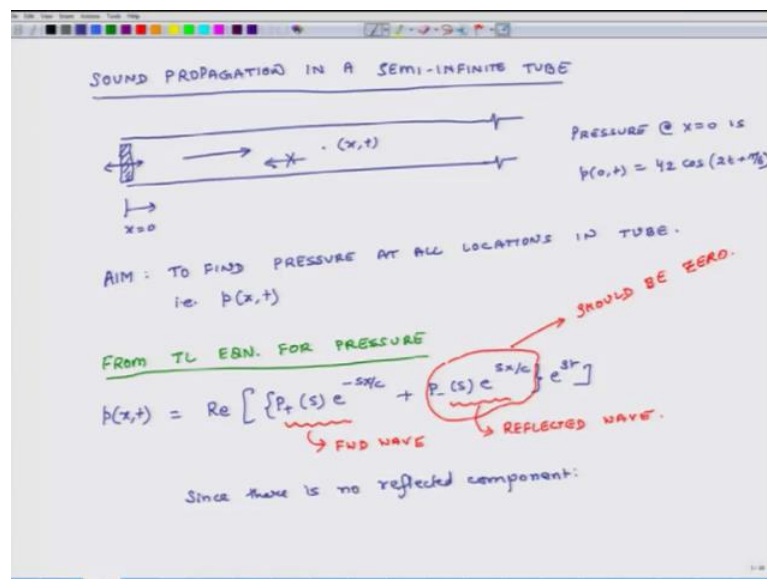 SOUND PROPAGATION IN A SEMI-INFINITE TUBE
(x,t)
PRESSURE @ x=0 is
p(0,t) = 42 cos (2t + π/6)
x=0
AIM : TO FIND PRESSURE AT ALL LOCATIONS IN TUBE.
i.e. p(x,t)
SHOULD BE ZERO.
FROM TL EQN. FOR PRESSURE
p(x,t) = Re [ { P+ (s) e^-sx/c + P- (s) e^sx/c } e^st ]
FWD WAVE
REFLECTED WAVE.
Since there is no reflected component: